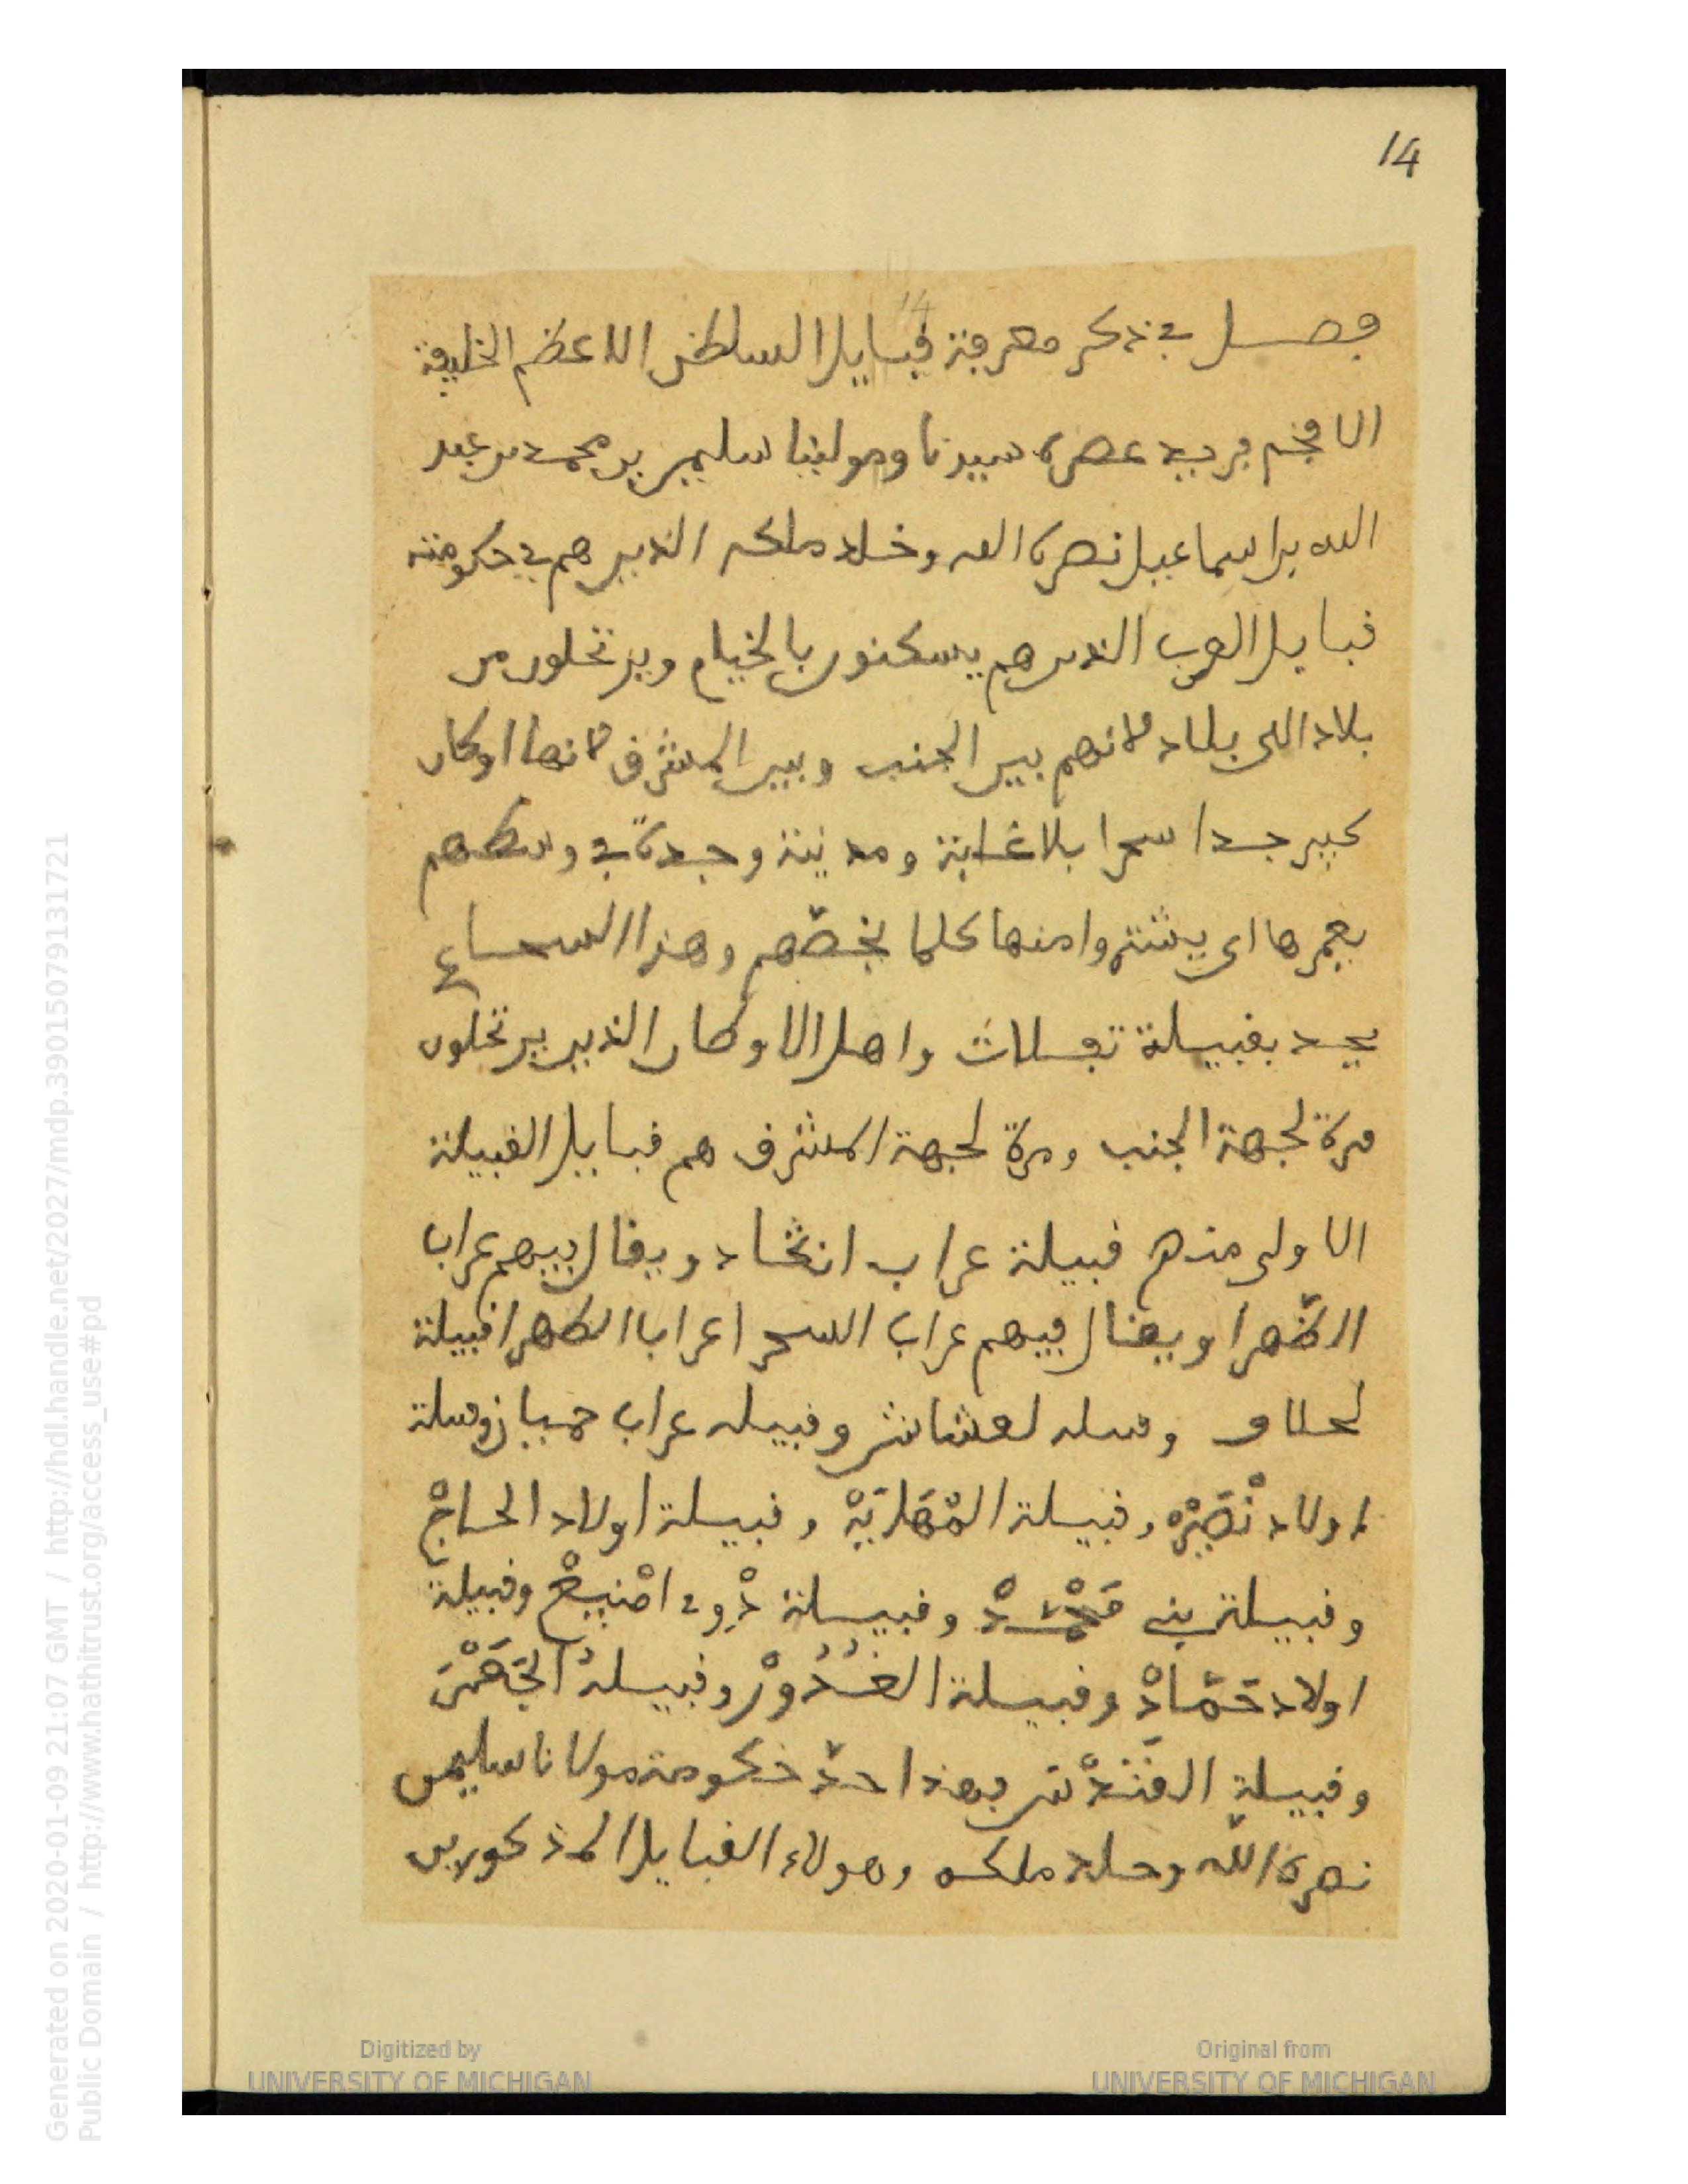 14
14
فصل في ذكر معرفة قبايل السلطن الاعظم الخليفة
الافخم فريد عصره سيدنا ومولينا سليمن بن محمد بن عبد
الله بن اسماعيل نصره الله وخلد ملكه الذين هم في حكومته
قبايل العرب الذين هم يسكنون بالخيام ويرتحلون من
بلاد الى بلاد لانهم بين الجنب وبين المشرق لانها اوطان
كبير جدا سحرا بلا غابة ومدينة وجدة في وسطهم
يعمرها اي يشتروا منها كلما يخصهم وهذا السحاع
يحد بقبيلة تفلات واهل الاوطان الذين يرتحلون
مرة لجهة الجنب ومرة لجهة المشرق هم قبايل القبيلة
الاولى منهم قبيلة عراب انڭاد ويقال فيهم عراب
الظهرا ويقال فيهم عراب السحرا عراب الظهرا قبيلة
لحلاف وقبيله لعشاش وقبيله عراب حميان وقبيلة
اولاد نْصَيْرْ وقبيلة المْهَايَةْ وقبيلة اولاد الحاجْ
وقبيلة بني وقبيلة ذْوِي امْنيعْ وقبيلة
اولاد حَمَّادْ وقبيلة الغُدُورْ وقبيلة
وقبيلة فهذا حدّ حكومة مولانا سليمن
نصره الله وخلد ملكه وهولاء القبايل المذكورين
Digitized by
UNIVERSITY OF MICHIGAN
Original from
UNIVERSITY OF MICHIGAN
Generated on 2020-01-09 21:07 GMT / http://hdl.handle.net/2027/mdp.39015079131721
Public Domain / http://www.hathitrust.org/access_use#pd